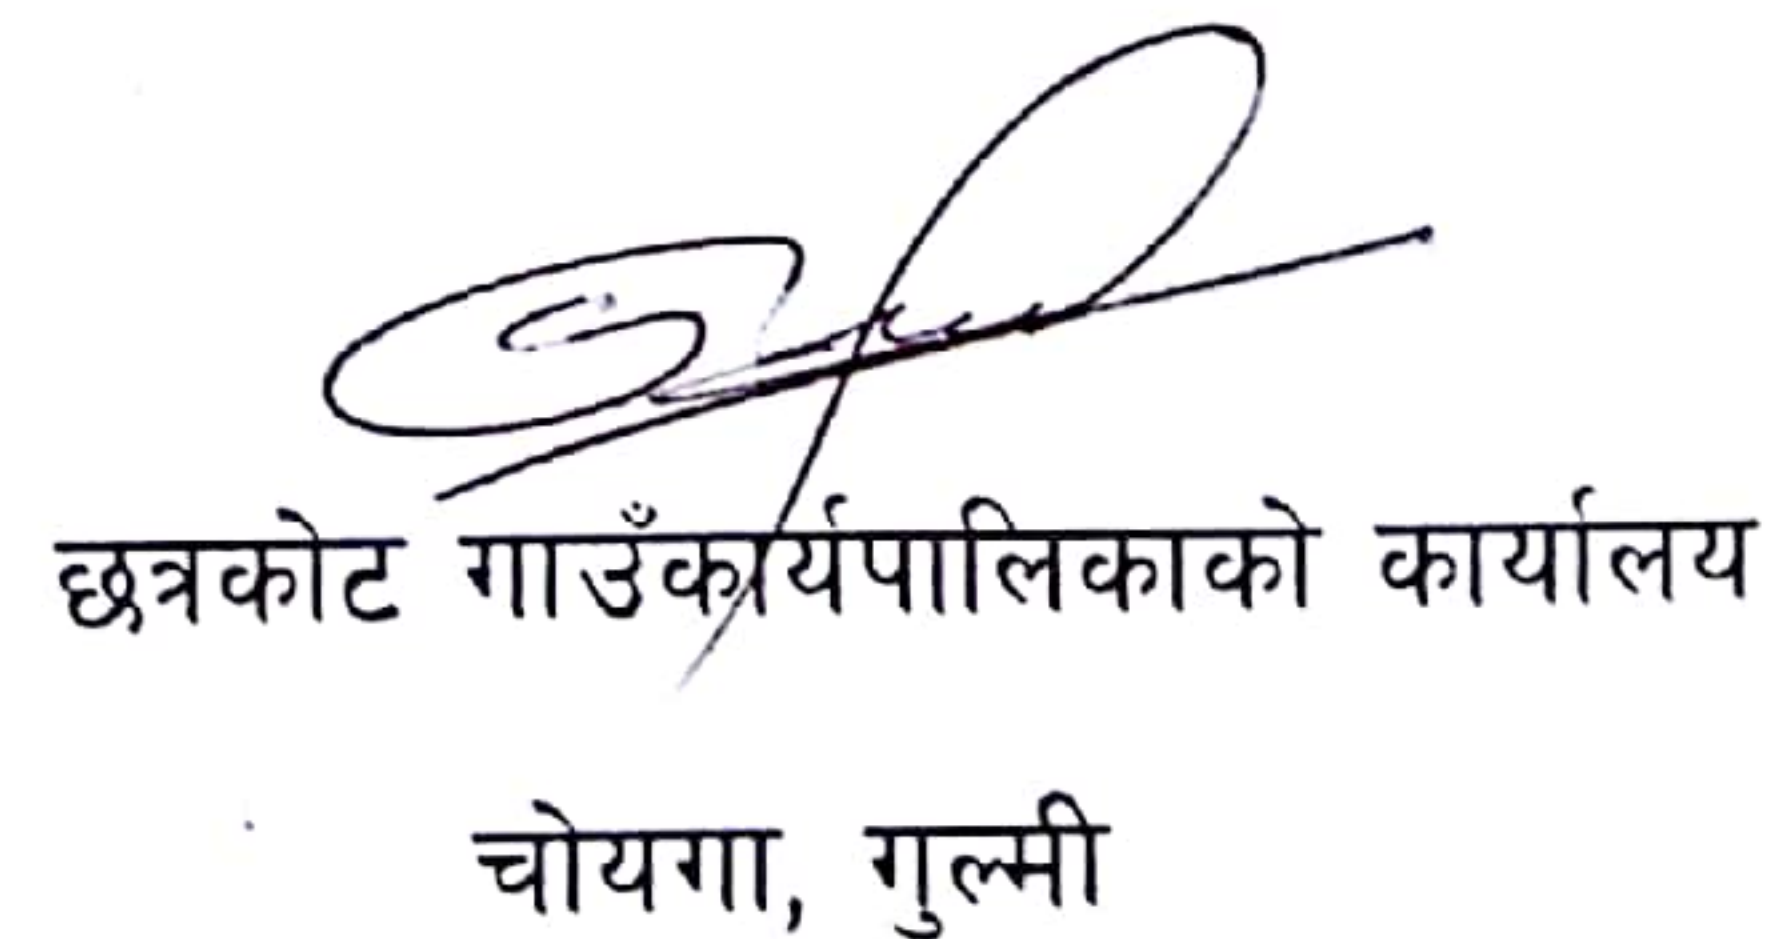 छत्रकोट गाउँकार्यपालिकाको कार्यालय
चोयगा, गुल्मी